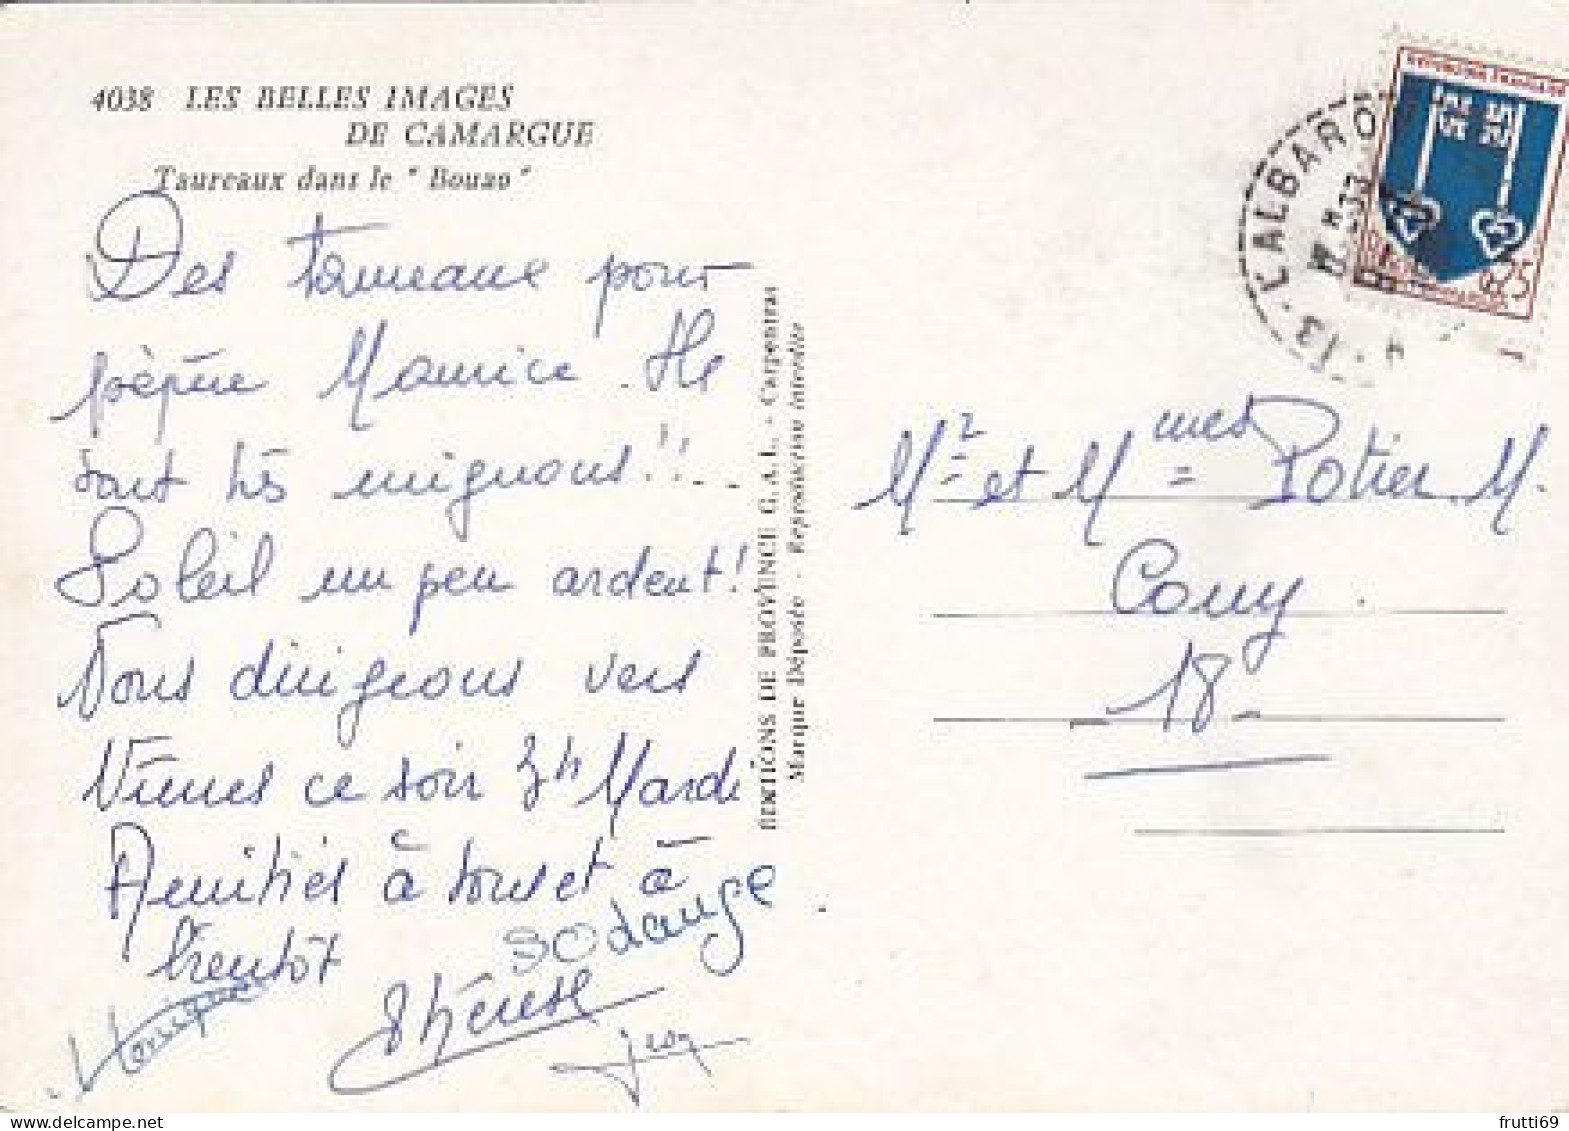 4038 LES BELLES IMAGES
DE CAMARGUE
Taureaux dans le "Bouao"
Des taureaux pour
pépère Maurice. Ils
sont très mignons!!..
Soleil un peu ardent!
Nous dirigeons vers
Nîmes ce soir 3h Mardi
Amitiés à tous et à
bientôt
Solange
Monique
Thérèse
EDITIONS DE PROVENCE G.A.L. - Carpentras
Marque Déposée - Reproduction interdite
REPUBLIQUE FRANCAISE
0,25
13. L'ALBARO
Mr et Mmes Potier. M.
Couy.
18-
frutti69